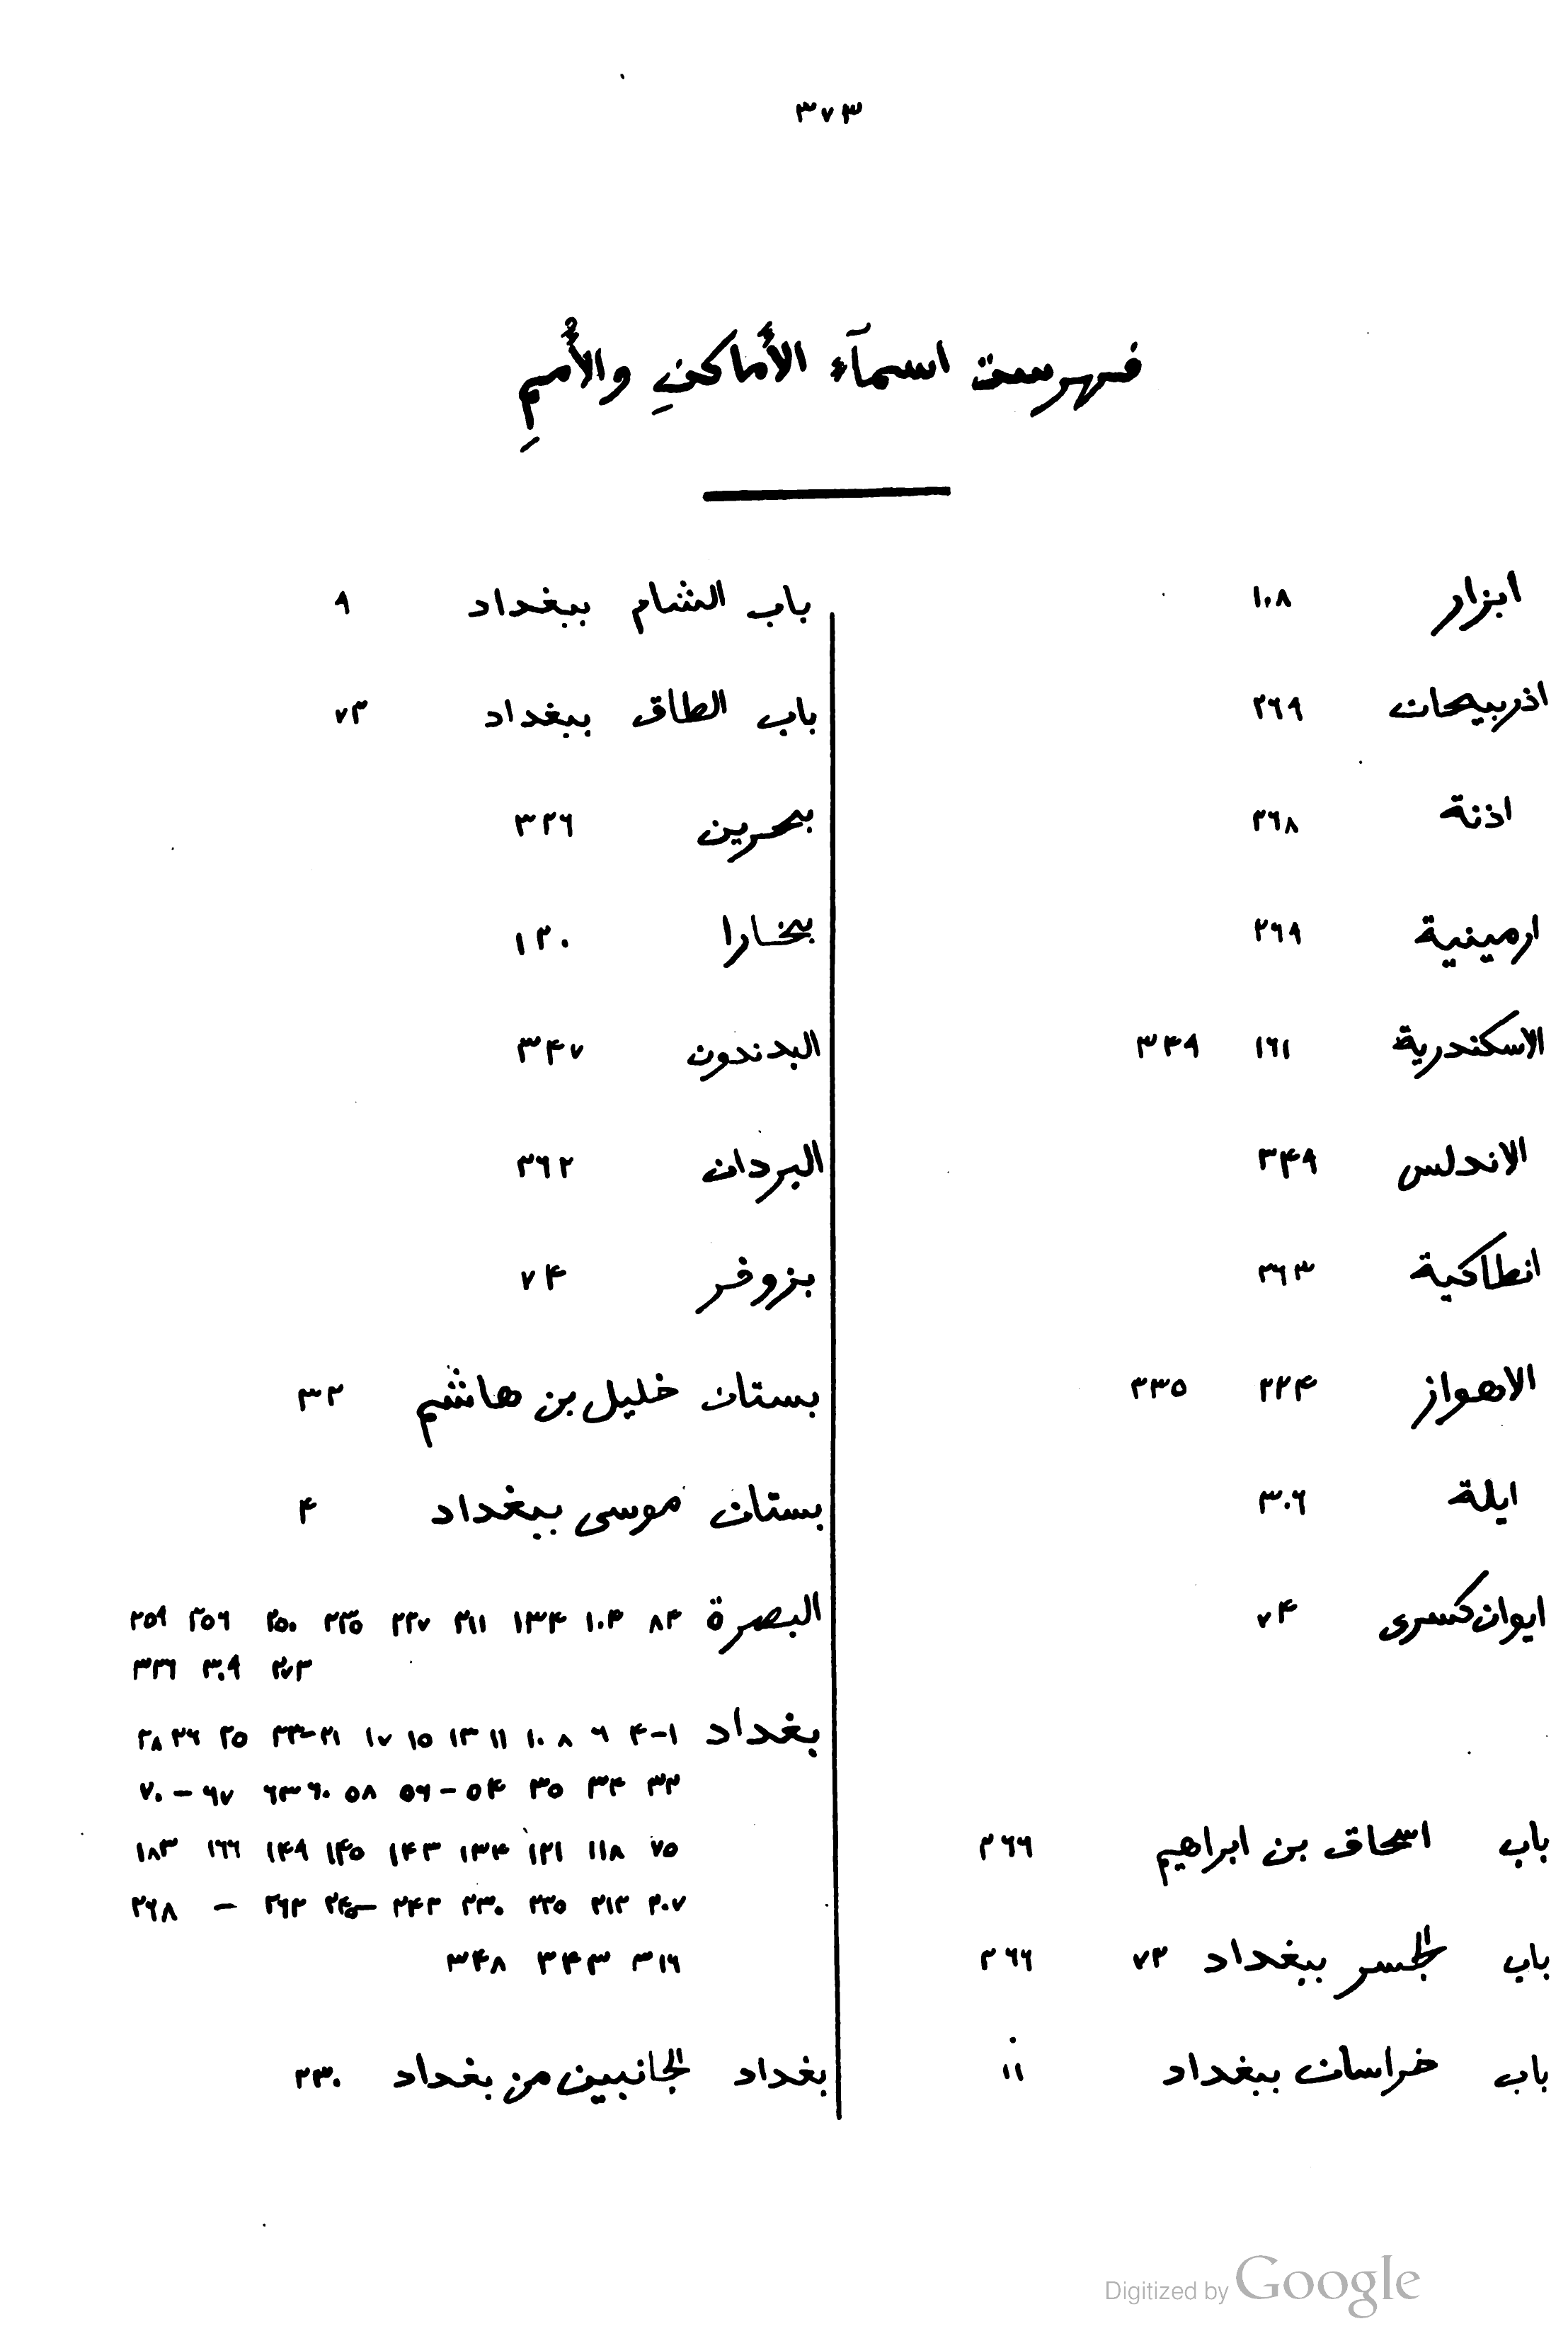 ٣٧٣
فهرست اسمآء الأماكنِ والأُممِ
ابزار ١٠٨
اذربيجان ٢٦٩
اذنة ٢٦٨
ارمينية ٢٦٩
الاسكندرية ١٦١ ٣٤٩
الاندلس ٣٤٩
انطاكية ٢٦٣
الاهواز ٢٢٤ ٢٣٥
ايلة ٣٠٦
ايوان كسرى ٧٤
باب اسحاق بن ابراهيم ٢٦٦
باب الجسر ببغداد ٧٢ ٢٦٦
باب خراسان ببغداد ١١
باب الشام ببغداد ٩
باب الطاق ببغداد ٧٢
بحرين ٣٢٦
بخارا ١٢٠
البدندون ٣٤٧
البردان ٢٦٢
بزوفر ٧٤
بستان خليل بن هاشم ٣٢
بستان موسى ببغداد ٤
البصرة ٨٤ ١٠٤ ١٣٤ ٢١١ ٢٢٧ ٢٣٥ ٢٥٠ ٢٥٦ ٢٥٩
٢٧٣ ٣٠٩ ٣٣٦
بغداد ١-٤ ٦ ٨ ١٠ ١١ ١٣ ١٥ ١٧ ٢١-٢٣ ٢٥ ٢٦ ٢٨
٣٢ ٣٤ ٣٥ ٥٤-٥٦ ٥٨ ٦٠ ٦٣ ٦٧-٧٠
٧٥ ١١٨ ١٢١ ١٣٤ ١٤٣ ١٤٥ ١٤٩ ١٦٦ ١٨٣
٢٠٧ ٢١٢ ٢٢٥ ٢٣٠ ٢٤٢-٢٤٥ ٢٦٢ - ٢٦٨
٣١٦ ٣٤٣ ٣٤٨
بغداد الجانبين من بغداد ٢٣٠
Digitized by Google